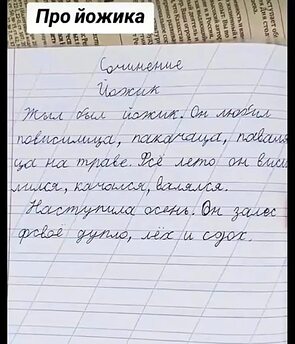 Про йожика
Сочинение
Йожик
Жыл был йожик. Он любил
повисилица, пакачаца, паваля
ца на траве. Всё лето он висе
лился, качался, валялся.
Наступила осень. Он залес
фсвоё дупло, лёх и сдох.